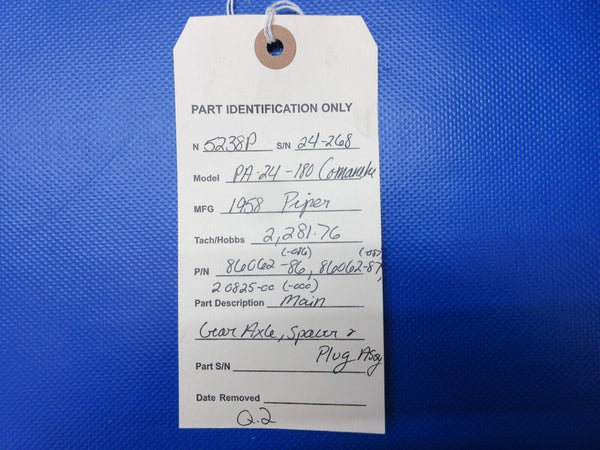 PART IDENTIFICATION ONLY
N 5238P S/N 24-268
Model PA-24-180 Comanche
MFG 1958 Piper
Tach/Hobbs 2,281.76
(-086) (-087)
P/N 86062-86, 86062-87,
20825-00 (-000)
Part Description Main
Gear Axle, Spacer &
Plug Assy
Part S/N
Date Removed
Q.2